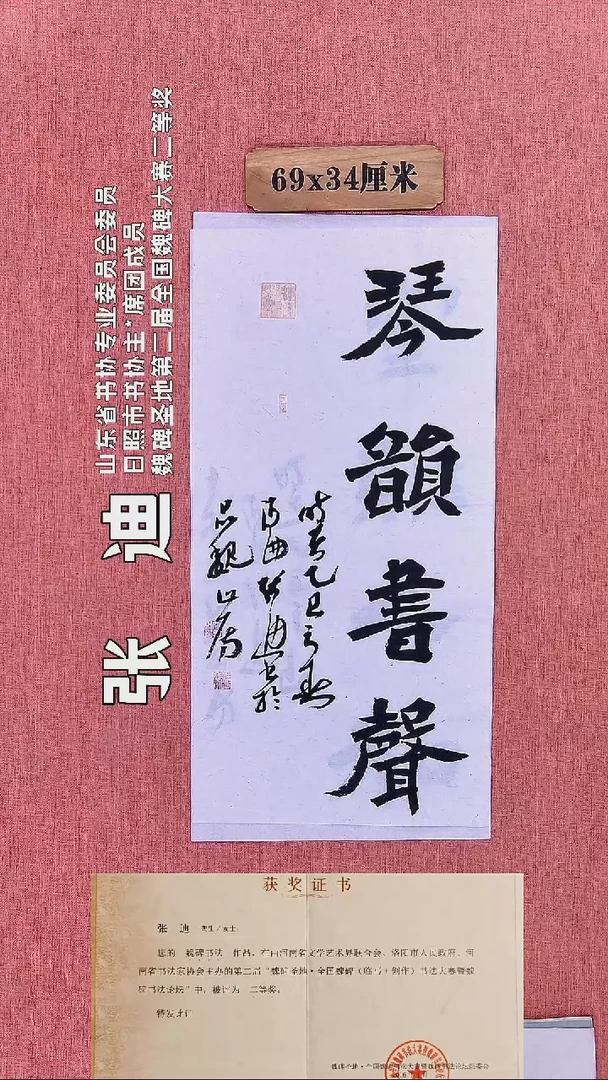 69x34厘米
琴韻書聲
時書乙巳之春
张迪
山东省书协专业委员会委员
日照市书协主*席团成员
魏碑圣地第二届全国魏碑大赛二等奖
获奖证书
张 迪 先生/女士:
您的 魏碑书法 作品,在由河南省文学艺术界联合会、洛阳市人民政府、河
南省书法家协会主办的第二届“魏碑圣地·全国魏碑(临写+创作)书法大赛暨魏
碑书法论坛”中,被评为 二等奖。
特发此证